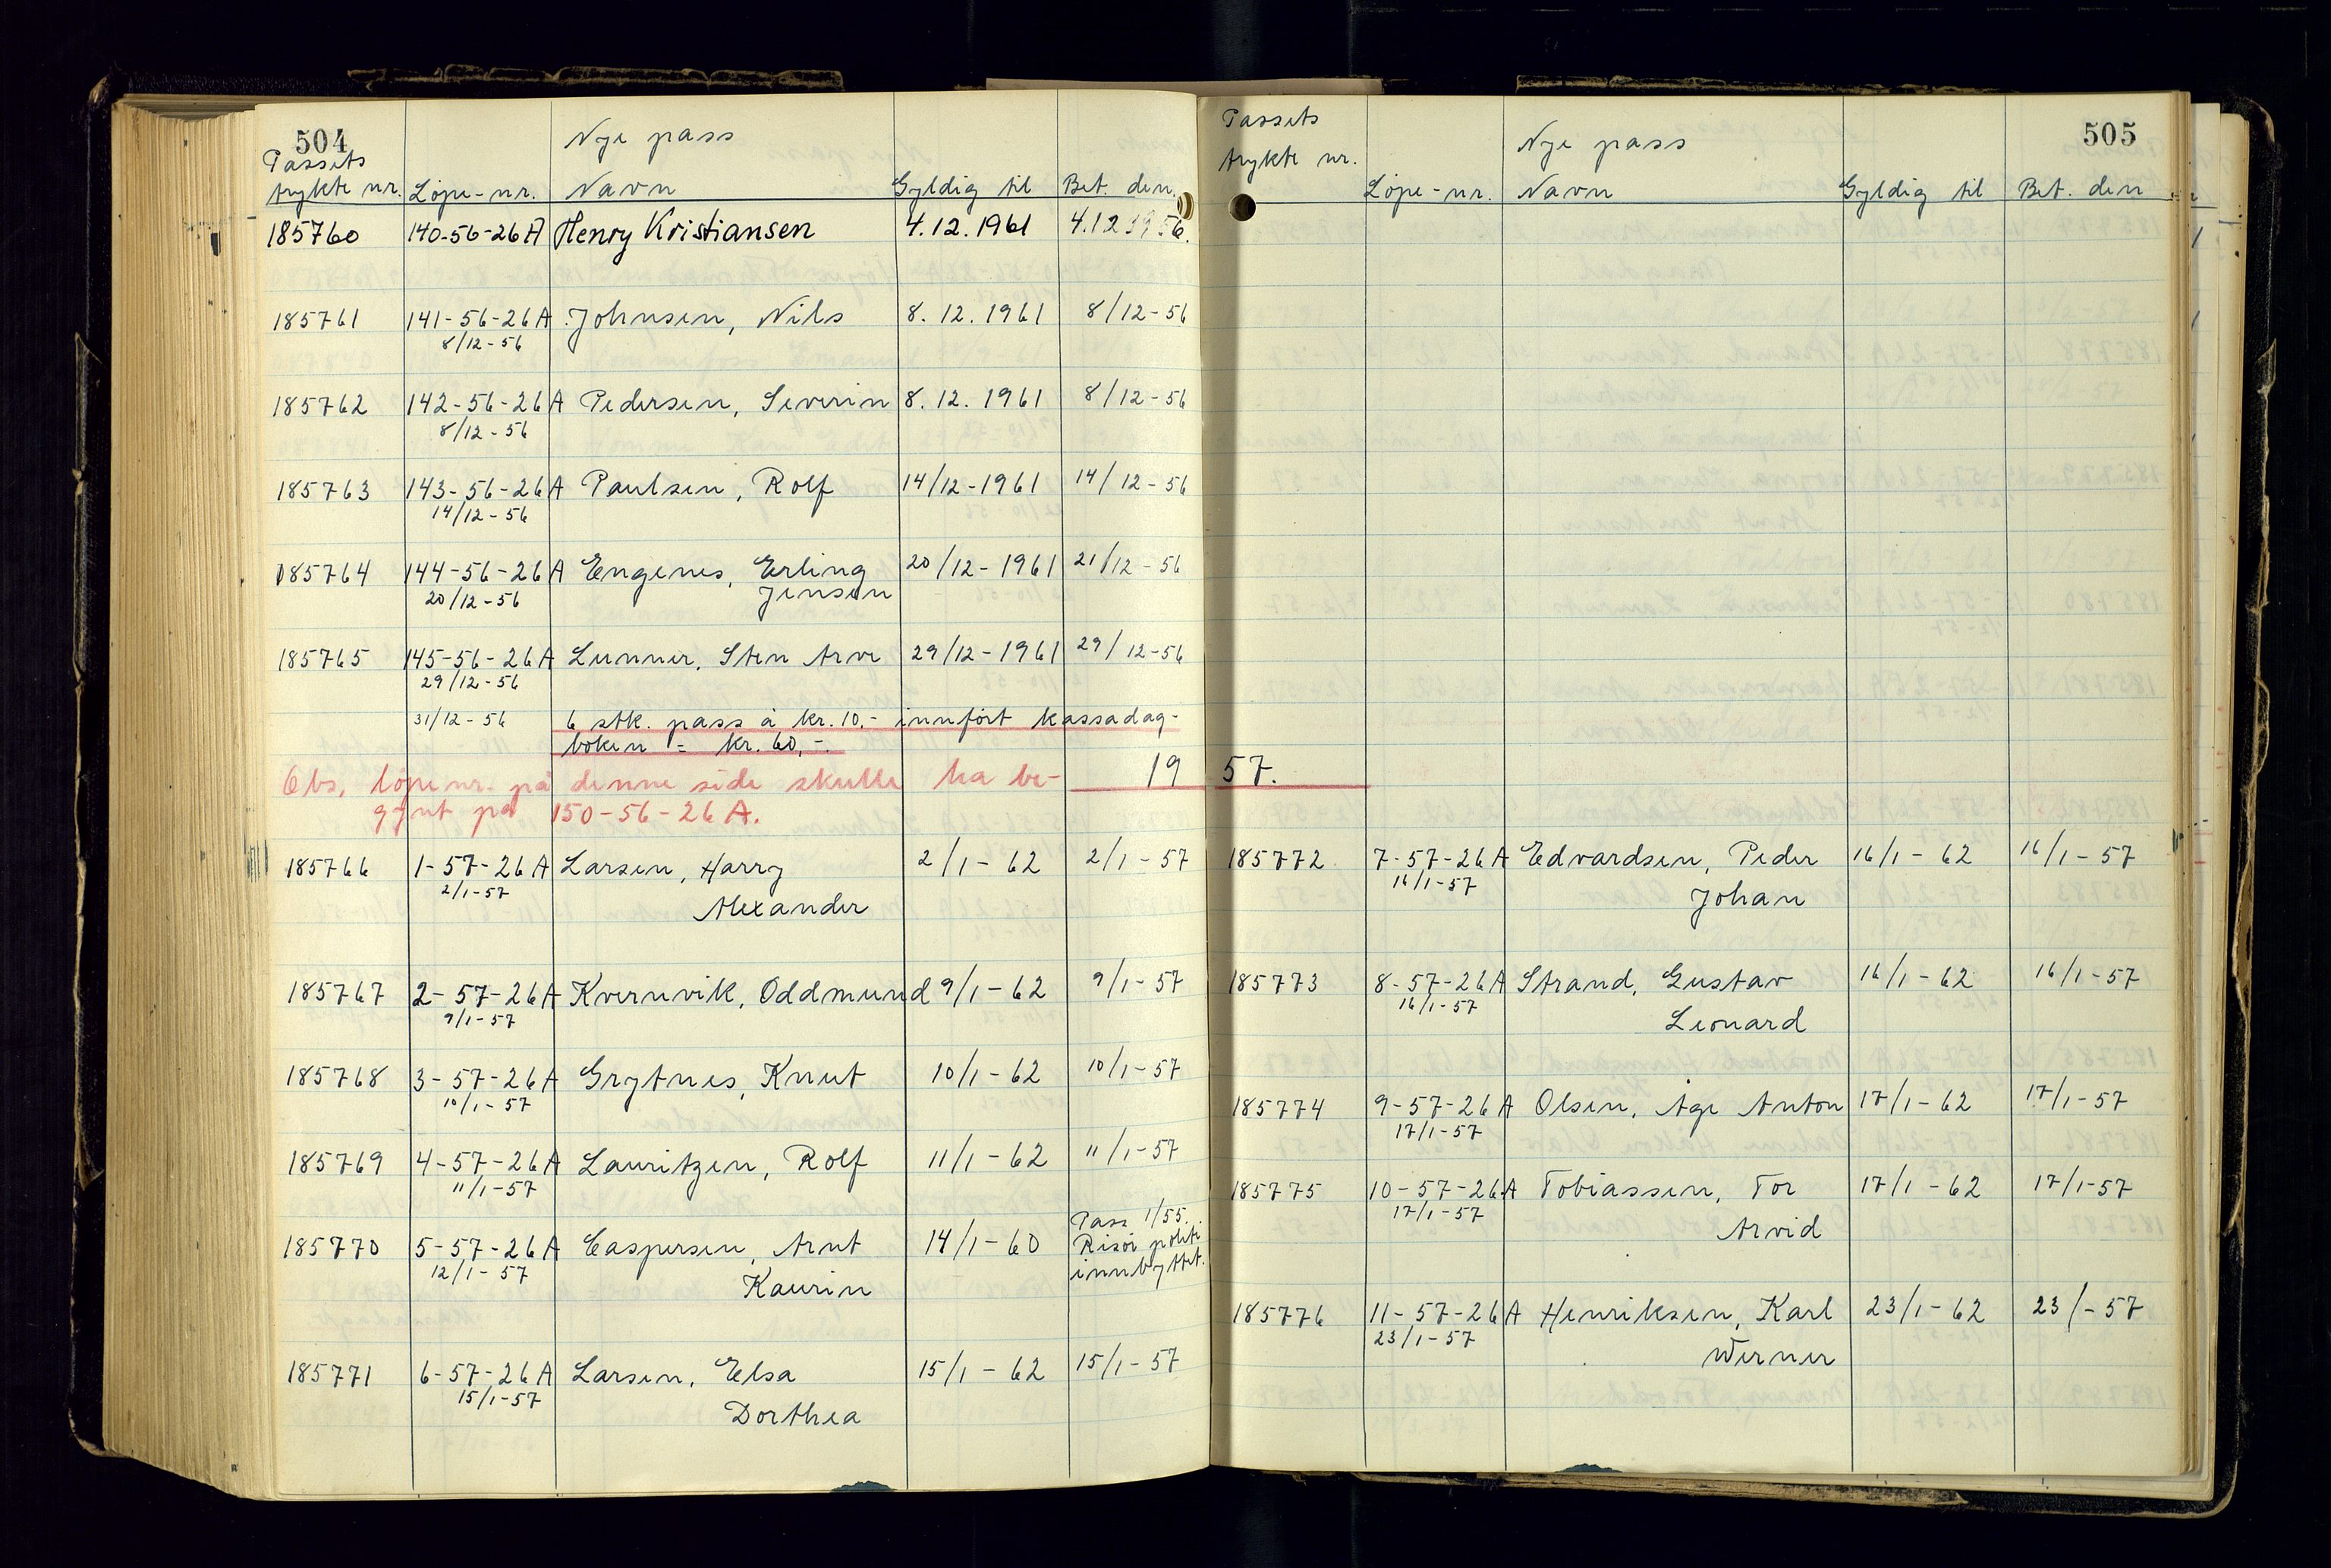 504
Nye pass
Passets
trykte nr. Löpe-nr. Navn Gyldig til Bet. den
185760 140-56-26A Henry Kristiansen 4.12.1961 4.12 1956.
185761 141-56-26A Johnsen, Nils 8.12.1961 8/12-56
8/12-56
185762 142-56-26A Pedersen, Severin 8.12.1961 8/12-56
8/12-56
185763 143-56-26A Paulsen, Rolf 14/12-1961 14/12-56
14/12-56
185764 144-56-26A Engenes, Erling 20/12-1961 21/12-56
20/12-56 Jensen
185765 145-56-26A Lunner, Sten Arve 29/12-1961 29/12-56
29/12-56
31/12-56 6 stk. pass à kr. 10.- innfört kassadag-
boken = kr. 60,-.
Obs. löpenr. på denne side skulle ha be-
gynt på 150-56-26A.
19
185766 1-57-26A Larsen, Harry 2/1-62 2/1-57
2/1-57 Alexander
185767 2-57-26A Kvernvik, Oddmund 9/1-62 9/1-57
9/1-57
185768 3-57-26A Grytnes, Knut 10/1-62 10/1-57
10/1-57
185769 4-57-26A Lauritzen, Rolf 11/1-62 11/1-57
11/1-57
185770 5-57-26A Caspersen, Arnt 14/1-60 Pass 1/55.
12/1-57 Kaurin Risör politi
innbyttet.
185771 6-57-26A Larsen, Elsa 15/1-62 15/1-57
15/1-57 Dorthea
505
Passets
trykte nr. Nye pass
Löpe-nr. Navn Gyldig til Bet. den
57.
185772 7-57-26A Edvardsen, Peder 16/1-62 16/1-57
16/1-57 Johan
185773 8-57-26A Strand, Gustav 16/1-62 16/1-57
16/1-57 Leonard
185774 9-57-26A Olsen, Åge Anton 17/1-62 17/1-57
17/1-57
185775 10-57-26A Tobiassen, Tor 17/1-62 17/1-57
17/1-57 Arvid
185776 11-57-26A Henriksen, Karl 23/1-62 23/-57
23/1-57 Werner